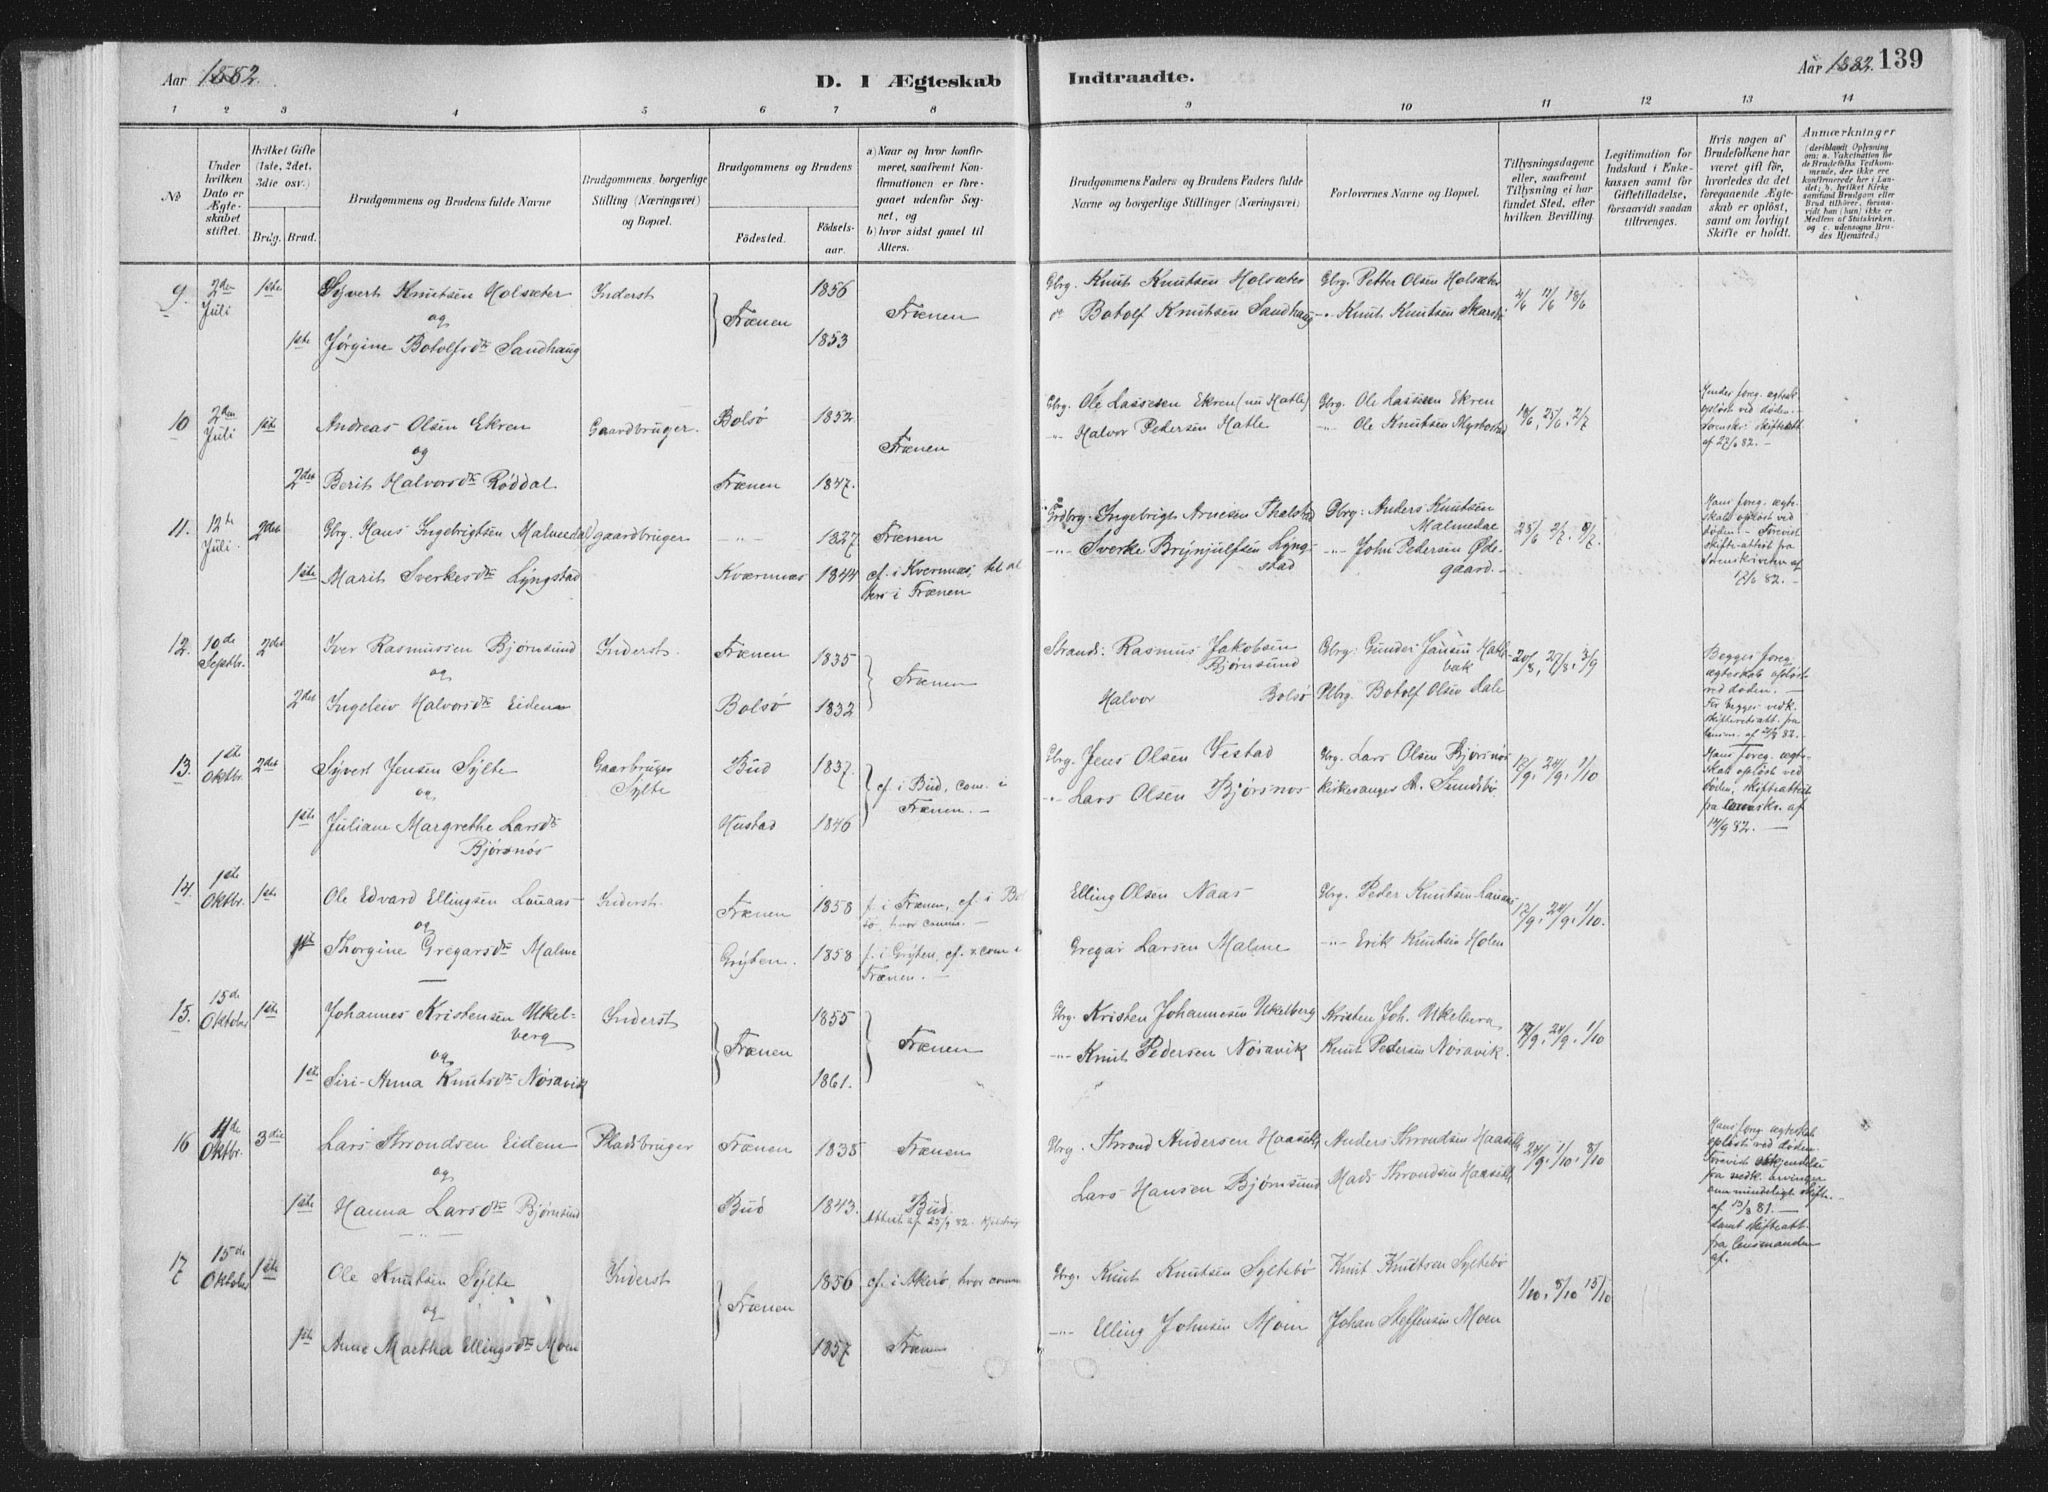 Aar 1882.
D. I Ægteskab Indtraadte.
Aar 1882. 139
1 2 3 4 5 6 7 8 9 10 11 12 13 14
No
Under hvilken Dato er Ægteskabet stiftet.
Hvilket Gifte (1ste, 2det, 3die osv.)
Brúg. Brud.
Brudgommens og Brudens fulde Navne
Brudgommens, borgerlige Stilling (Næringsvei) og Bopæl.
Brudgommens og Brudens
Födested. Födselsaar.
a) Naar og hvor konfirmeret, saafremt Konfirmationen er foregaaet udenfor Sognet, og
b) hvor sidst gaaet til Alters.
Brudgommens Faders og Brudens Faders fulde Navne og borgerlige Stillinger (Næringsvei)
Forlovernes Navne og Bopæl.
Tillysningsdagene eller, saafremt Tillysning ei har fundet Sted, efter hvilken Bevilling.
Legitimation for Indskud i Enkekassen samt for Giftetilladelse, forsaavidt saadan tiltrænges.
Hvis nogen af Brudefolkene har været gift för, hvorledes da det foregaaende Ægteskab er oplöst, samt om lovligt Skifte er holdt.
Anmærkninger (deriblandt Oplysning om: a. Vakcination for de Brudefolks Vedkommende, der ikke ere konfirmerede her i Landet; b. hvilket Kirkesamfund Brudgom eller Brud tilhörer, forsaavidt han (hun) ikke er Medlem af Statskirken, og c. udensogns Brudes Hjemsted.)
9. 2den Juli 1ste Syvert Knutsen Holsæter Inderst 1856 Gbrg. Knut Knutsen Holsæter Gbrg. Petter Olsen Holsæter
og } Frænen Frænen 4/6 11/6 18/6
do Botolf Knutsen Sandhaug -"- Knut Knutsen Skarsbø
1ste Jørgine Botolfsdtr Sandhaug 1853
10 2den Juli 1ste Andreas Olsen Ekren Gaardbruger. Bolsø 1852 Gbrg. Ole Lassesen Ekren (nu Hatle) Gbrg. Ole Lassesen Ekren 18/6, 25/6, 2/7
og Frænen -"- Halvor Pedersen Hatle -"- Ole Knutsen Myrbostad
2det Berit Halvorsdtr Røddal Frænen 1847.
Hendes foreg. ægtesk. opløst ved døden.
11. 12te Juli 2det Gbrg. Hans Ingebrigtsen Malmedal gaardbruger -"- 1827 Frænen Ingebrigt Arnesen Gbrg: Anders Knutsen Malmedal 25/6 2/7. 9/7.
1ste Marit Sverkesdtr Lyngstad Kværnnæs 1844 cf. i Kvernnæs, til alters i Frænen -"- Sverke Brynjulfsen Lyngstad -"- John Pedersen Ødegaard.
Hans foreg. ægteskab opløst ved døden. - Forevist skifte-attest fra
12. 10de Septbr. 2det Iver Rasmussen Bjørnsund Inderst. Frænen 1835 Strands: Rasmus Jakobsen Bjørnsund Gbrg: Gunder Jansen Hatlebak 20/8, 27/8, 3/9
og } Frænen
2det Ingeleiv Halvorsdtr Eidem Bolsø 1832 Halvor Bolsø Gbrg. Botolf Olsen Dale
Begges foreg. ægteskab opløst ved døden.
13. 1ste Oktbr. 2det Syvert Jensen Sylte Gaarbruger Sylte Bud 1837. Gbrg. Jens Olsen Vestad Gbrg. Lars Olsen Bjørsnøs 17/9, 24/9, 1/10
og } cf. i Bud, com. i Frænen. -"- Lars Olsen Bjørsnos Kirkesanger A. Sundsbø.
1ste Juliane Margrethe Larsdtr Bjørsnøs Hustad 1846
Hans foreg. ægteskab opløst ved døden, skifteattest fra lensk. af 14/9 82.
14. 1ste Oktbr. 1ste Ole Edvard Ellingsen Lanaas Inderst. Frænen 1858 f. i Frænen, cf. i Bolsø, hvor comm. Elling Olsen Naas Gbrg. Peder Knutsen Lanaas 17/9, 24/9, 1/10.
og
1ste Thorgine Gregarsdtr Malme Gryten. 1858 f. i Gryten, cf. & com i Frænen. Gregar Larsen Malme -"- Erik Knutsen Holen
15. 15de Oktober 1ste Johannes Kristensen Ukelberg Inderst 1855 Gbrg. Kristen Johannesen Ukelberg Kristen Joh. Ukelberg 17/9, 24/9, 1/10
og } Frænen } Frænen -"- Knut Pedersen Nøsavik Knut Pedersen Nøsavik.
1ste Siri-Anna Knutsdtr Nøsavik 1861.
16 11de Oktbr. 3die Lars Throndsen Eidem Pladsbruger Frænen 1835 Frænen Gbrg. Thrond Andersen Haasæth Anders Throndsen Haasæth 24/9, 1/10, 8/10
og
1ste Hanna Larsdtr Bjørnsund Bud 1843. Bud. Attest af 25/9 82. Lars Hansen Bjørnsund Mads Throndsen Haasæth
Hans foreg. ægteskab opløst ved døden. Forevist
fra vedk. arvinger om mindeligt skifte af 13/3 81. samt skifteatt. fra lensmanden af.
17 15de Oktober 1ste Ole Knutsen Sylte Inderst 1856 cf. i Akerø, hvor comm Gbrg. Knut Knutsen Syltebø Knut Knutsen Syltebø 1/10, 8/10 15/10
og } Frænen
1ste Anne Martha Ellingsdtr Moen 1857 Frænen -"- Elling Johnsen Moen Johan Steffensen Moen